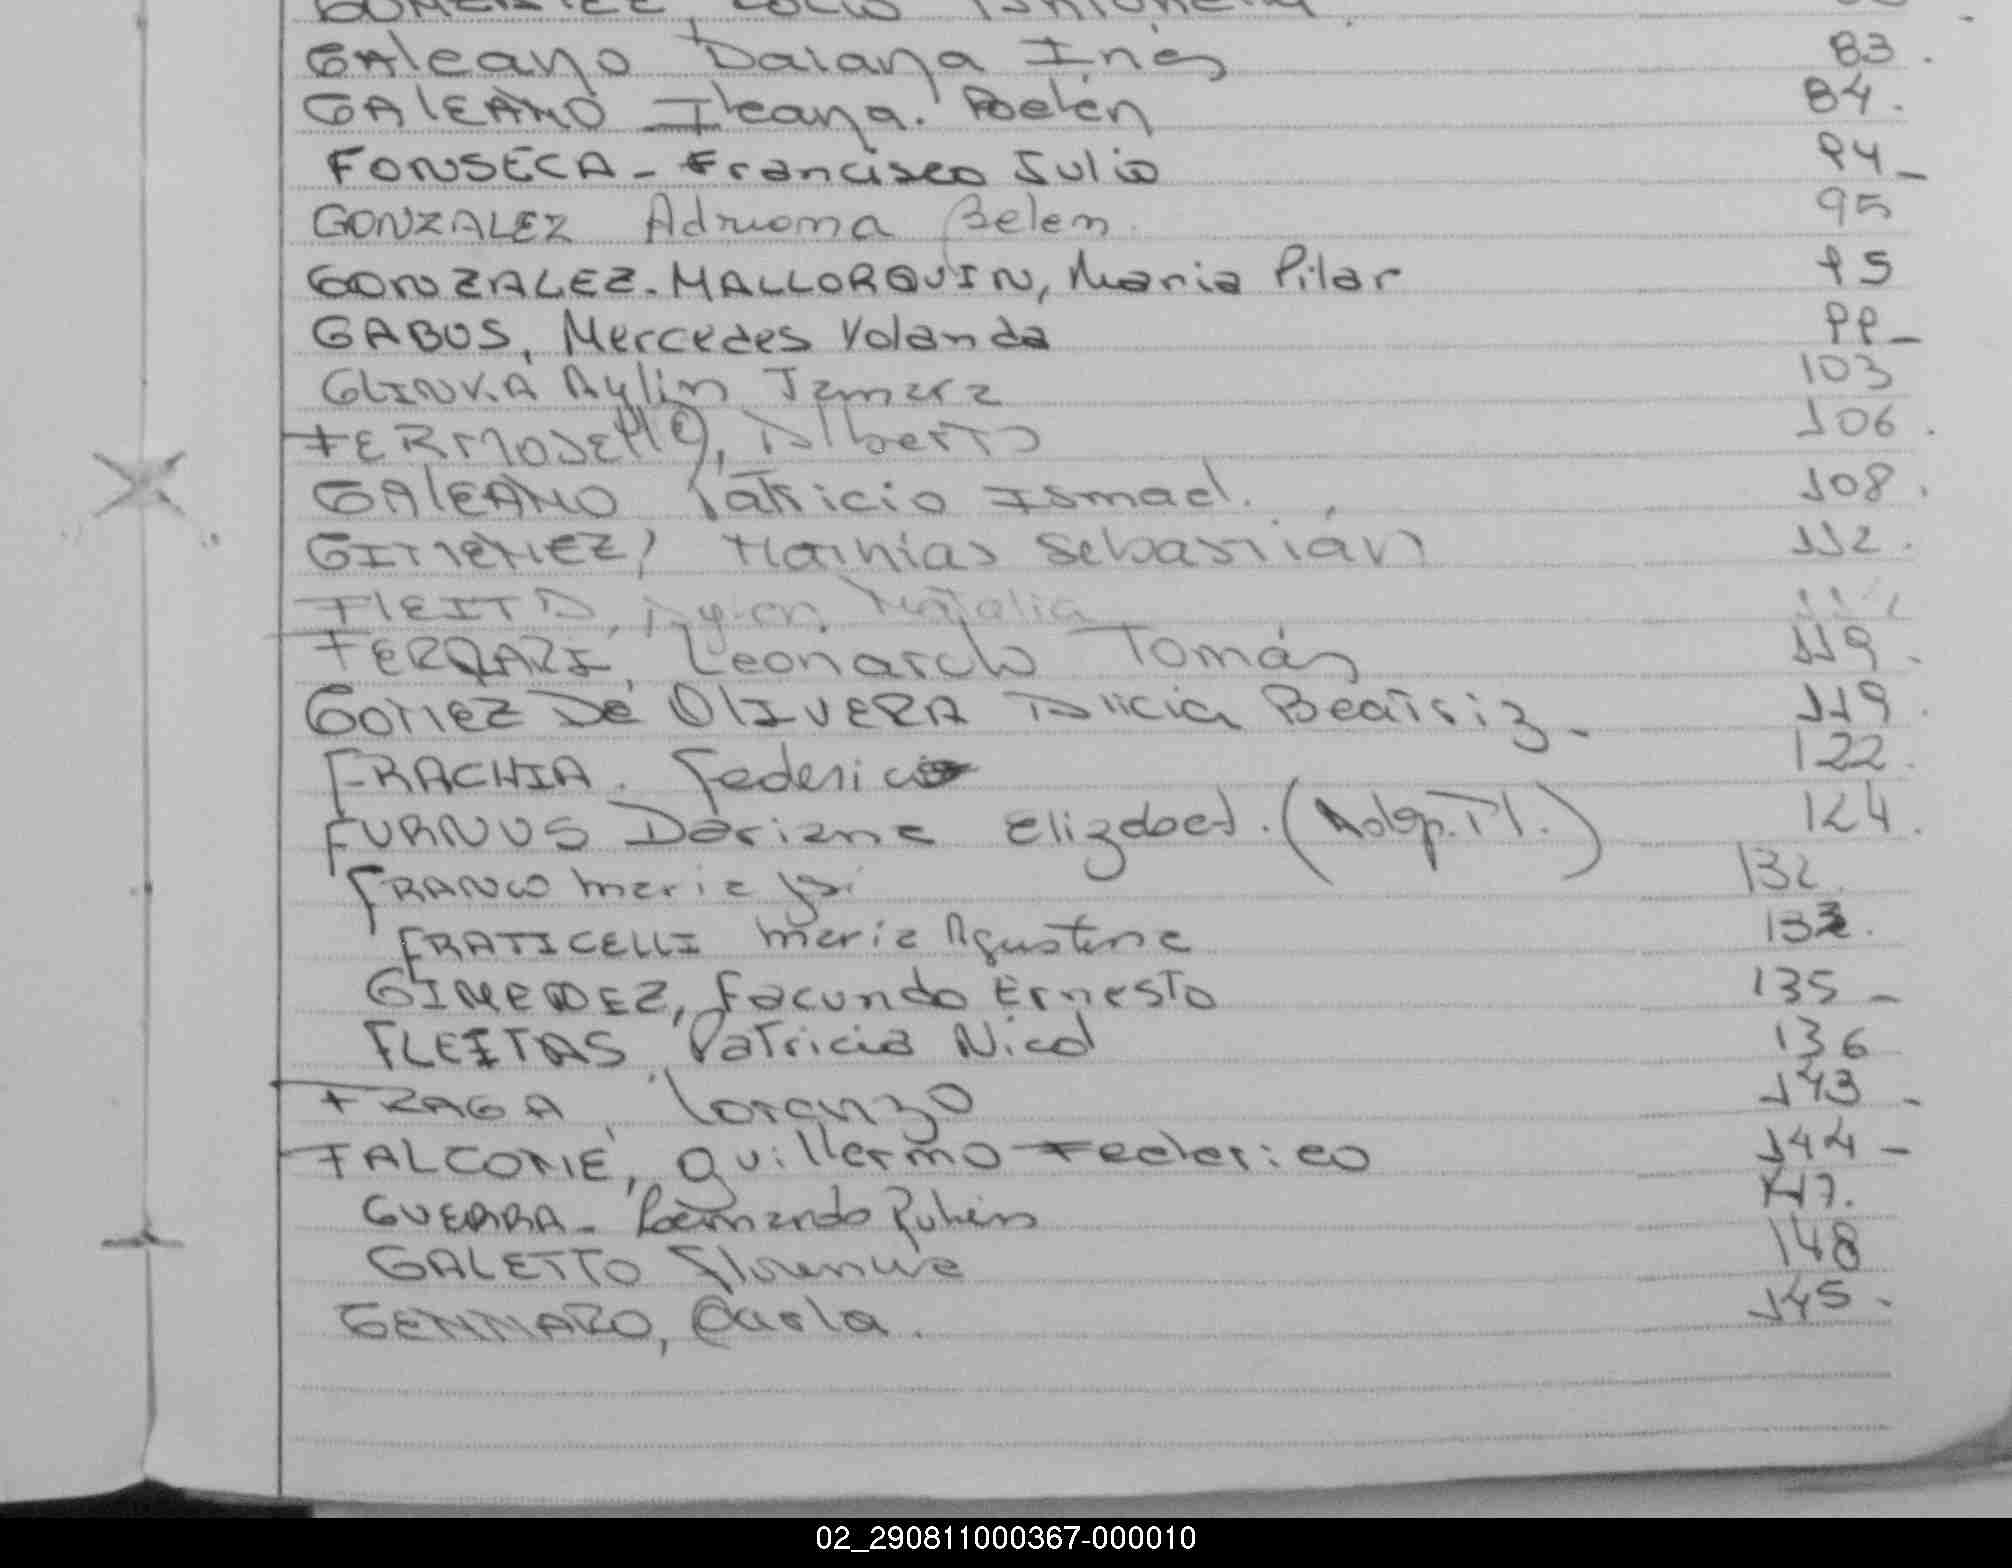 Galeano Daiana Inés 83.
GALEANO Ileana. Belén 84.
FONSECA - Francisco Julio 94_
GONZALEZ Adriana Belen. 95
GONZALEZ-MALLORQUIN, Maria Pilar 95
GABUS, Mercedes Yolanda 99_
GLINKA Aylin Tamara 103
FERMOSELLE, Alberto 106.
GALEANO Patricio Ismael. 108.
GIMENEZ, Mathias Sebastián 112.
FLEITA, Natalia
FERRARI, Leonardo Tomás 119.
GOMEZ De OLIVERA Alicia Beatriz_ 119.
FRACHIA. Federico 122.
FURNUS Dariana Elizabet. (Adop. Pl.) 124.
FRANCO Maria José 132.
FRATICELLI Maria Agustina 133.
GIMENEZ, Facundo Ernesto 135_
FLEITAS, Patricia Nicol 136
FRAGA, Loranzo 143.
FALCONE, Guillermo Federico 144-
GUERRA - Bernardo Rubén 147.
GALETTO Florencia 148
GENNARO, Carla. 145.
02_290811000367-000010